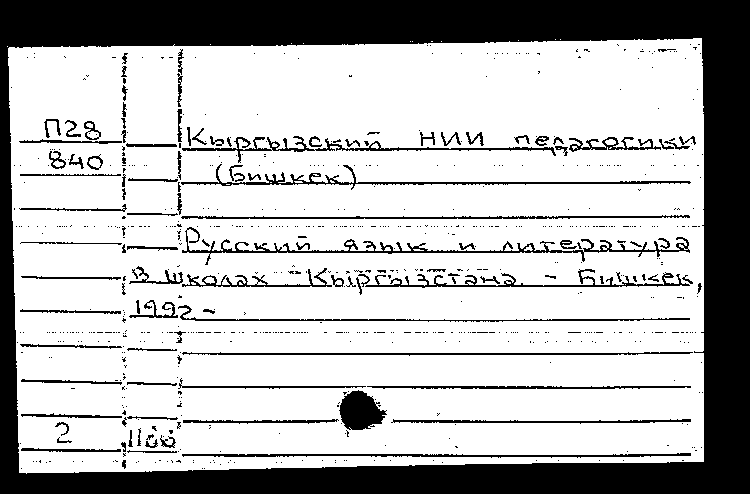 П28 Кыргызский НИИ педагогики
840 (Бишкек)
Русский язык и литература
в школах Кыргызстана. - Бишкек,
1992 -
2 1100